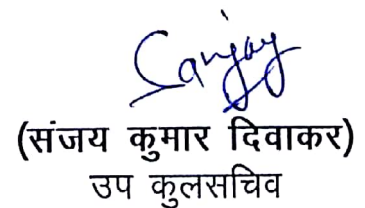 Sanjay
(संजय कुमार दिवाकर)
उप कुलसचिव